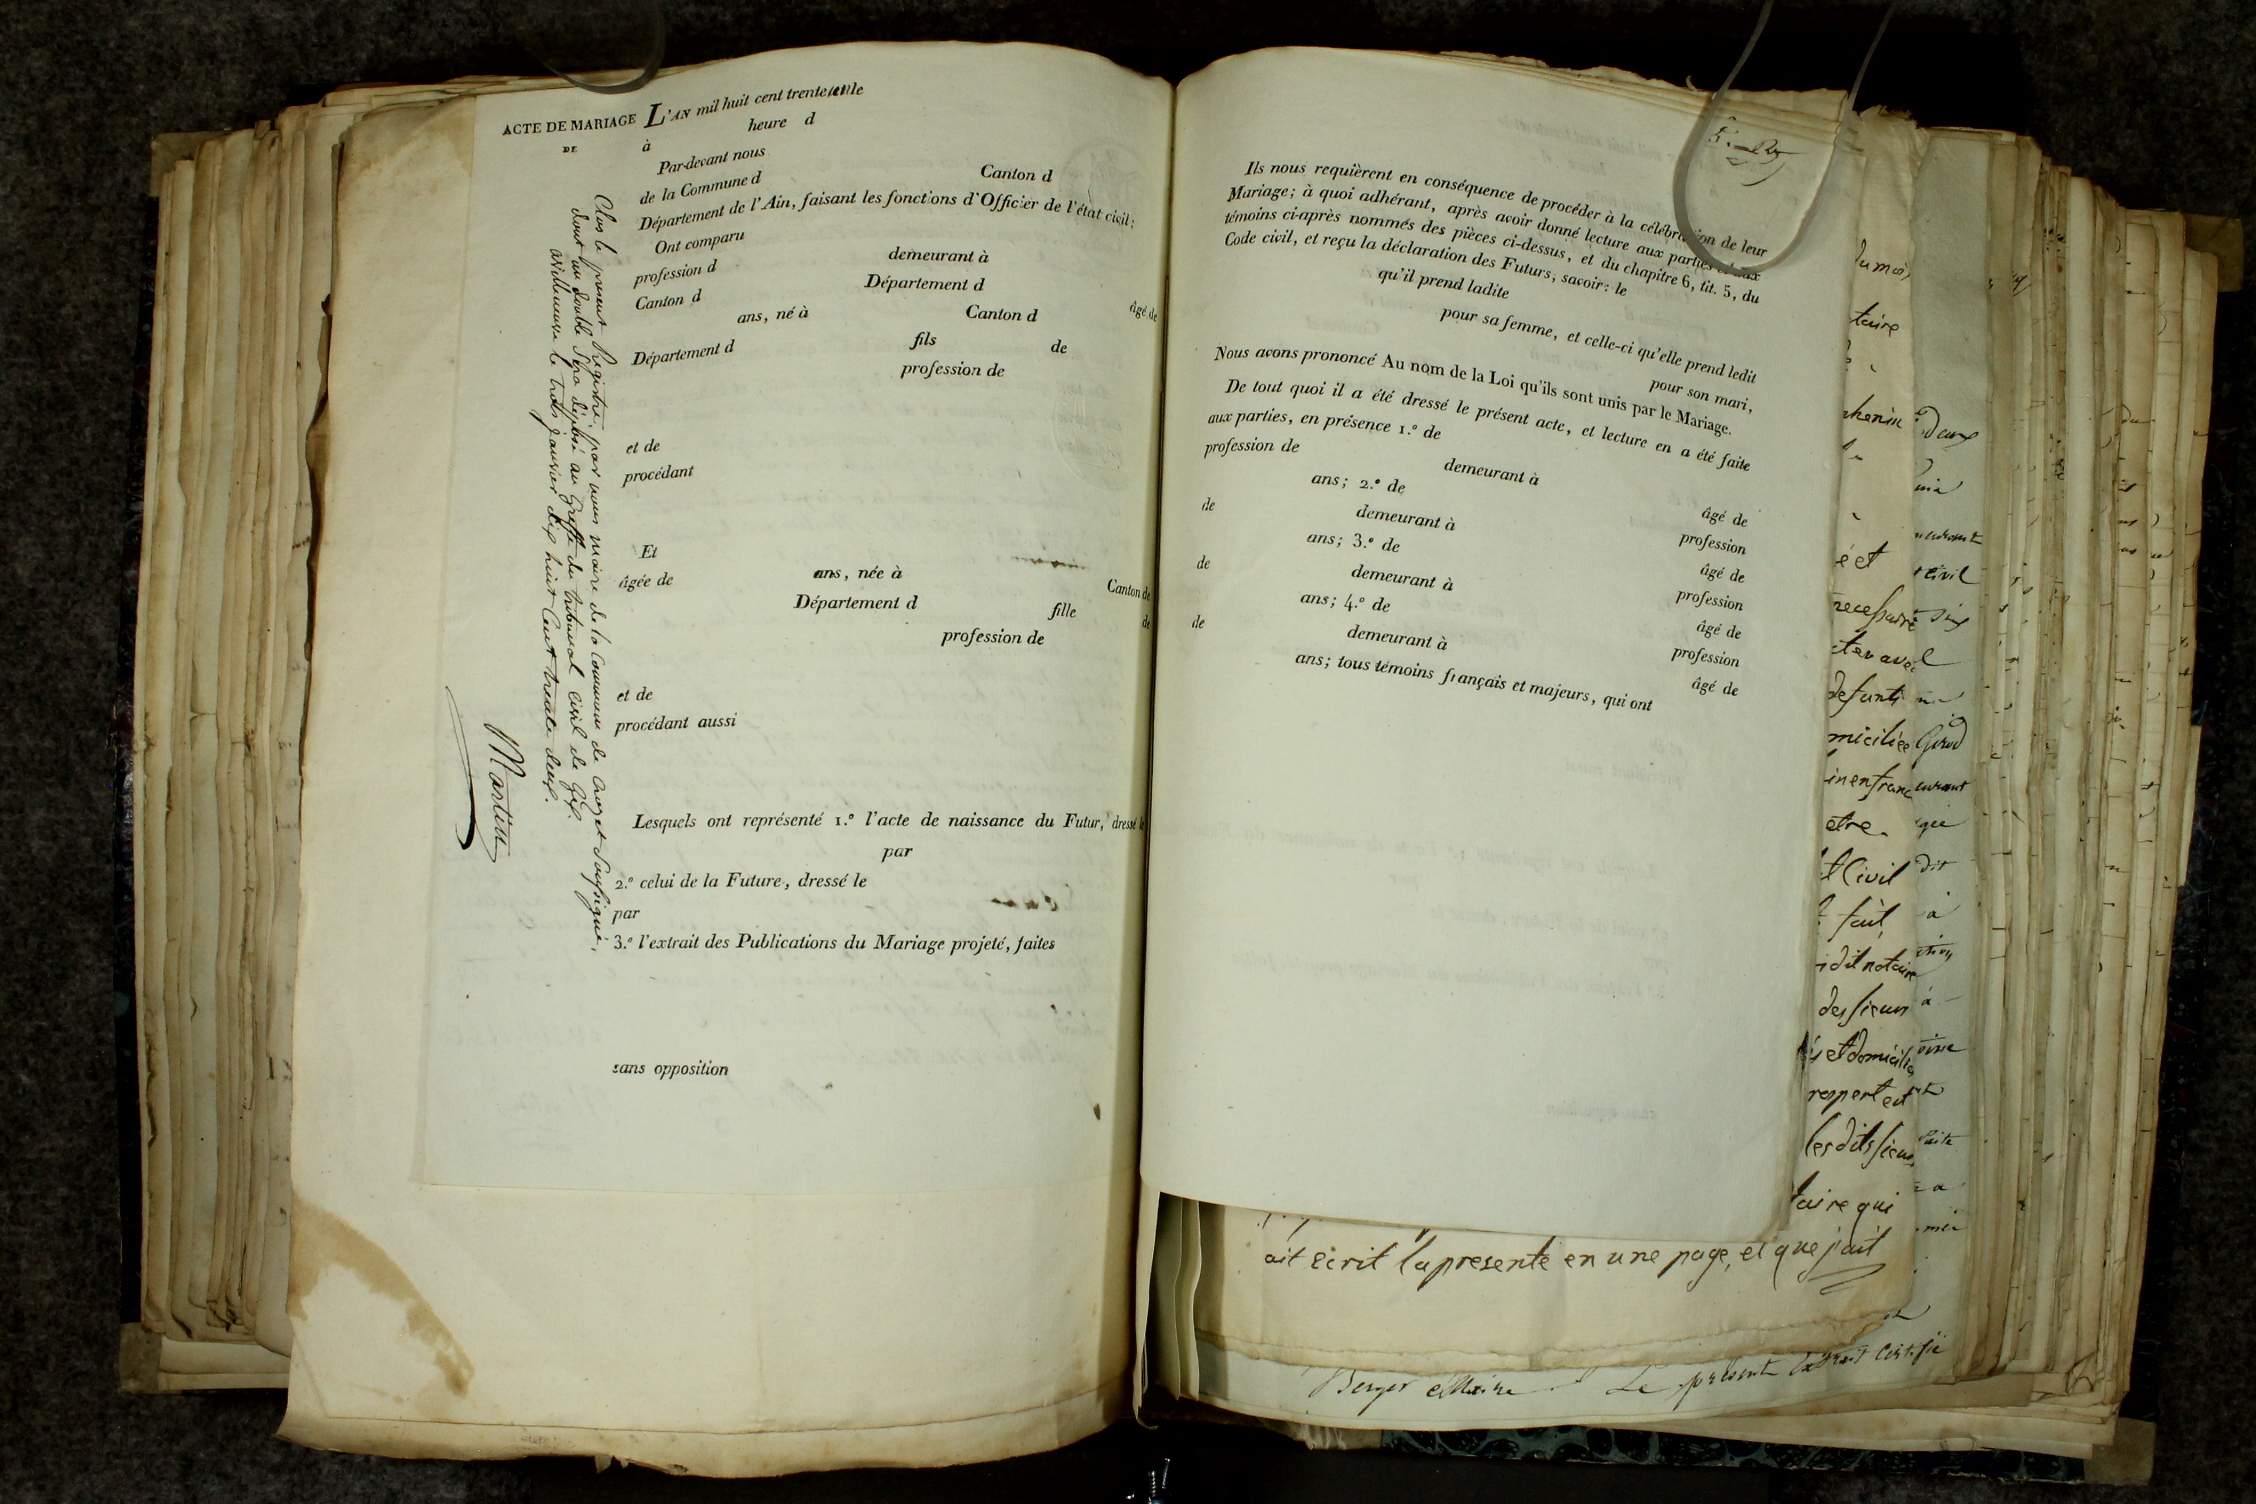 ACTE DE MARIAGE
DE
L'AN mil huit cent trente et un le
à heure d
Par-devant nous
de la Commune d Canton d
Département de l'Ain, faisant les fonctions d'Officier de l'état civil;
Ont comparu
profession d demeurant à
Canton d Département d âgé de
ans, né à Canton d
Département d fils de
profession de
et de
procédant
Et
âgée de ans, née à Canton de
Département d fille de
profession de
et de
procédant aussi
Lesquels ont représenté 1.° l'acte de naissance du Futur, dressé le
par
2.° celui de la Future, dressé le
par
3.° l'extrait des Publications du Mariage projeté, faites
sans opposition
Clos le present Registre, par nous maire de la Commune de Crozet Soussigné,
dont un double Sera déposé au Greffe du tribunal Civil de Gex.
le trois janvier dix huit Cent trente deux.
Martin
Ils nous requièrent en conséquence de procéder à la célébration de leur
Mariage; à quoi adhérant, après avoir donné lecture aux parties et aux
témoins ci-après nommés des pièces ci-dessus, et du chapitre 6, tit. 5, du
Code civil, et reçu la déclaration des Futurs, savoir: le
qu'il prend ladite
pour sa femme, et celle-ci qu'elle prend ledit
pour son mari,
Nous avons prononcé Au nom de la Loi qu'ils sont unis par le Mariage.
De tout quoi il a été dressé le présent acte, et lecture en a été faite
aux parties, en présence 1.° de
profession de demeurant à âgé de
ans; 2.° de profession
de demeurant à âgé de
ans; 3.° de profession
de demeurant à âgé de
ans; 4.° de profession
de demeurant à âgé de
ans; tous témoins français et majeurs, qui ont
taire
é et
defunts
et Civil
fait
dit notaire
des sieurs
et domicilié
les dits sieurs
taire qui
ait écrit la presente en une page, et que j'ait
Berger Maire Le présent Extrait Certifié